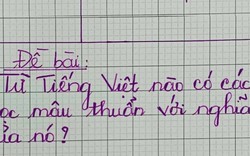 Đề bài:
Từ Tiếng Việt nào có các
đọc mâu thuẫn với nghĩa
của nó?